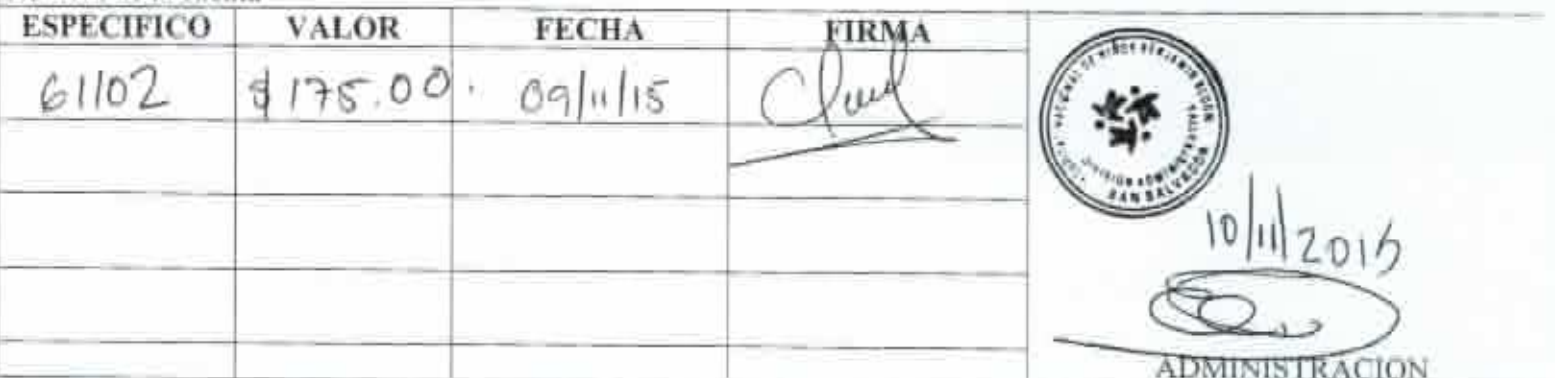 ESPECIFICO VALOR FECHA FIRMA
61102 $175.00. 09/11/15
DE NIÑOS BENJAMIN BLOOM
DIVISION ADMINISTRATIVA
SAN SALVADOR
10/11/2015
ADMINISTRACION